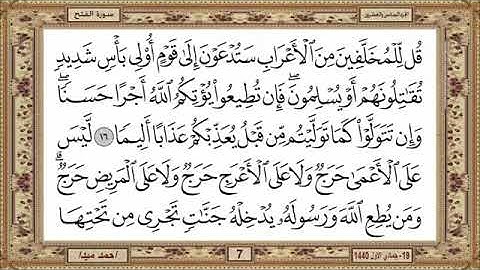 الجزء السادس والعشرون سورة الفتح
قُل لِّلْمُخَلَّفِينَ مِنَ ٱلْأَعْرَابِ سَتُدْعَوْنَ إِلَىٰ قَوْمٍ أُو۟لِى بَأْسٍ شَدِيدٍ
تُقَـٰتِلُونَهُمْ أَوْ يُسْلِمُونَ ۖ فَإِن تُطِيعُوا۟ يُؤْتِكُمُ ٱللَّهُ أَجْرًا حَسَنًا ۖ
وَإِن تَتَوَلَّوْا۟ كَمَا تَوَلَّيْتُم مِّن قَبْلُ يُعَذِّبْكُمْ عَذَابًا أَلِيمًا ١٦ لَّيْسَ
عَلَى ٱلْأَعْمَىٰ حَرَجٌ وَلَا عَلَى ٱلْأَعْرَجِ حَرَجٌ وَلَا عَلَى ٱلْمَرِيضِ حَرَجٌ ۗ
وَمَن يُطِعِ ٱللَّهَ وَرَسُولَهُۥ يُدْخِلْهُ جَنَّـٰتٍ تَجْرِى مِن تَحْتِهَا
19- جمادي الاول 1440 7 /احمد ميد/